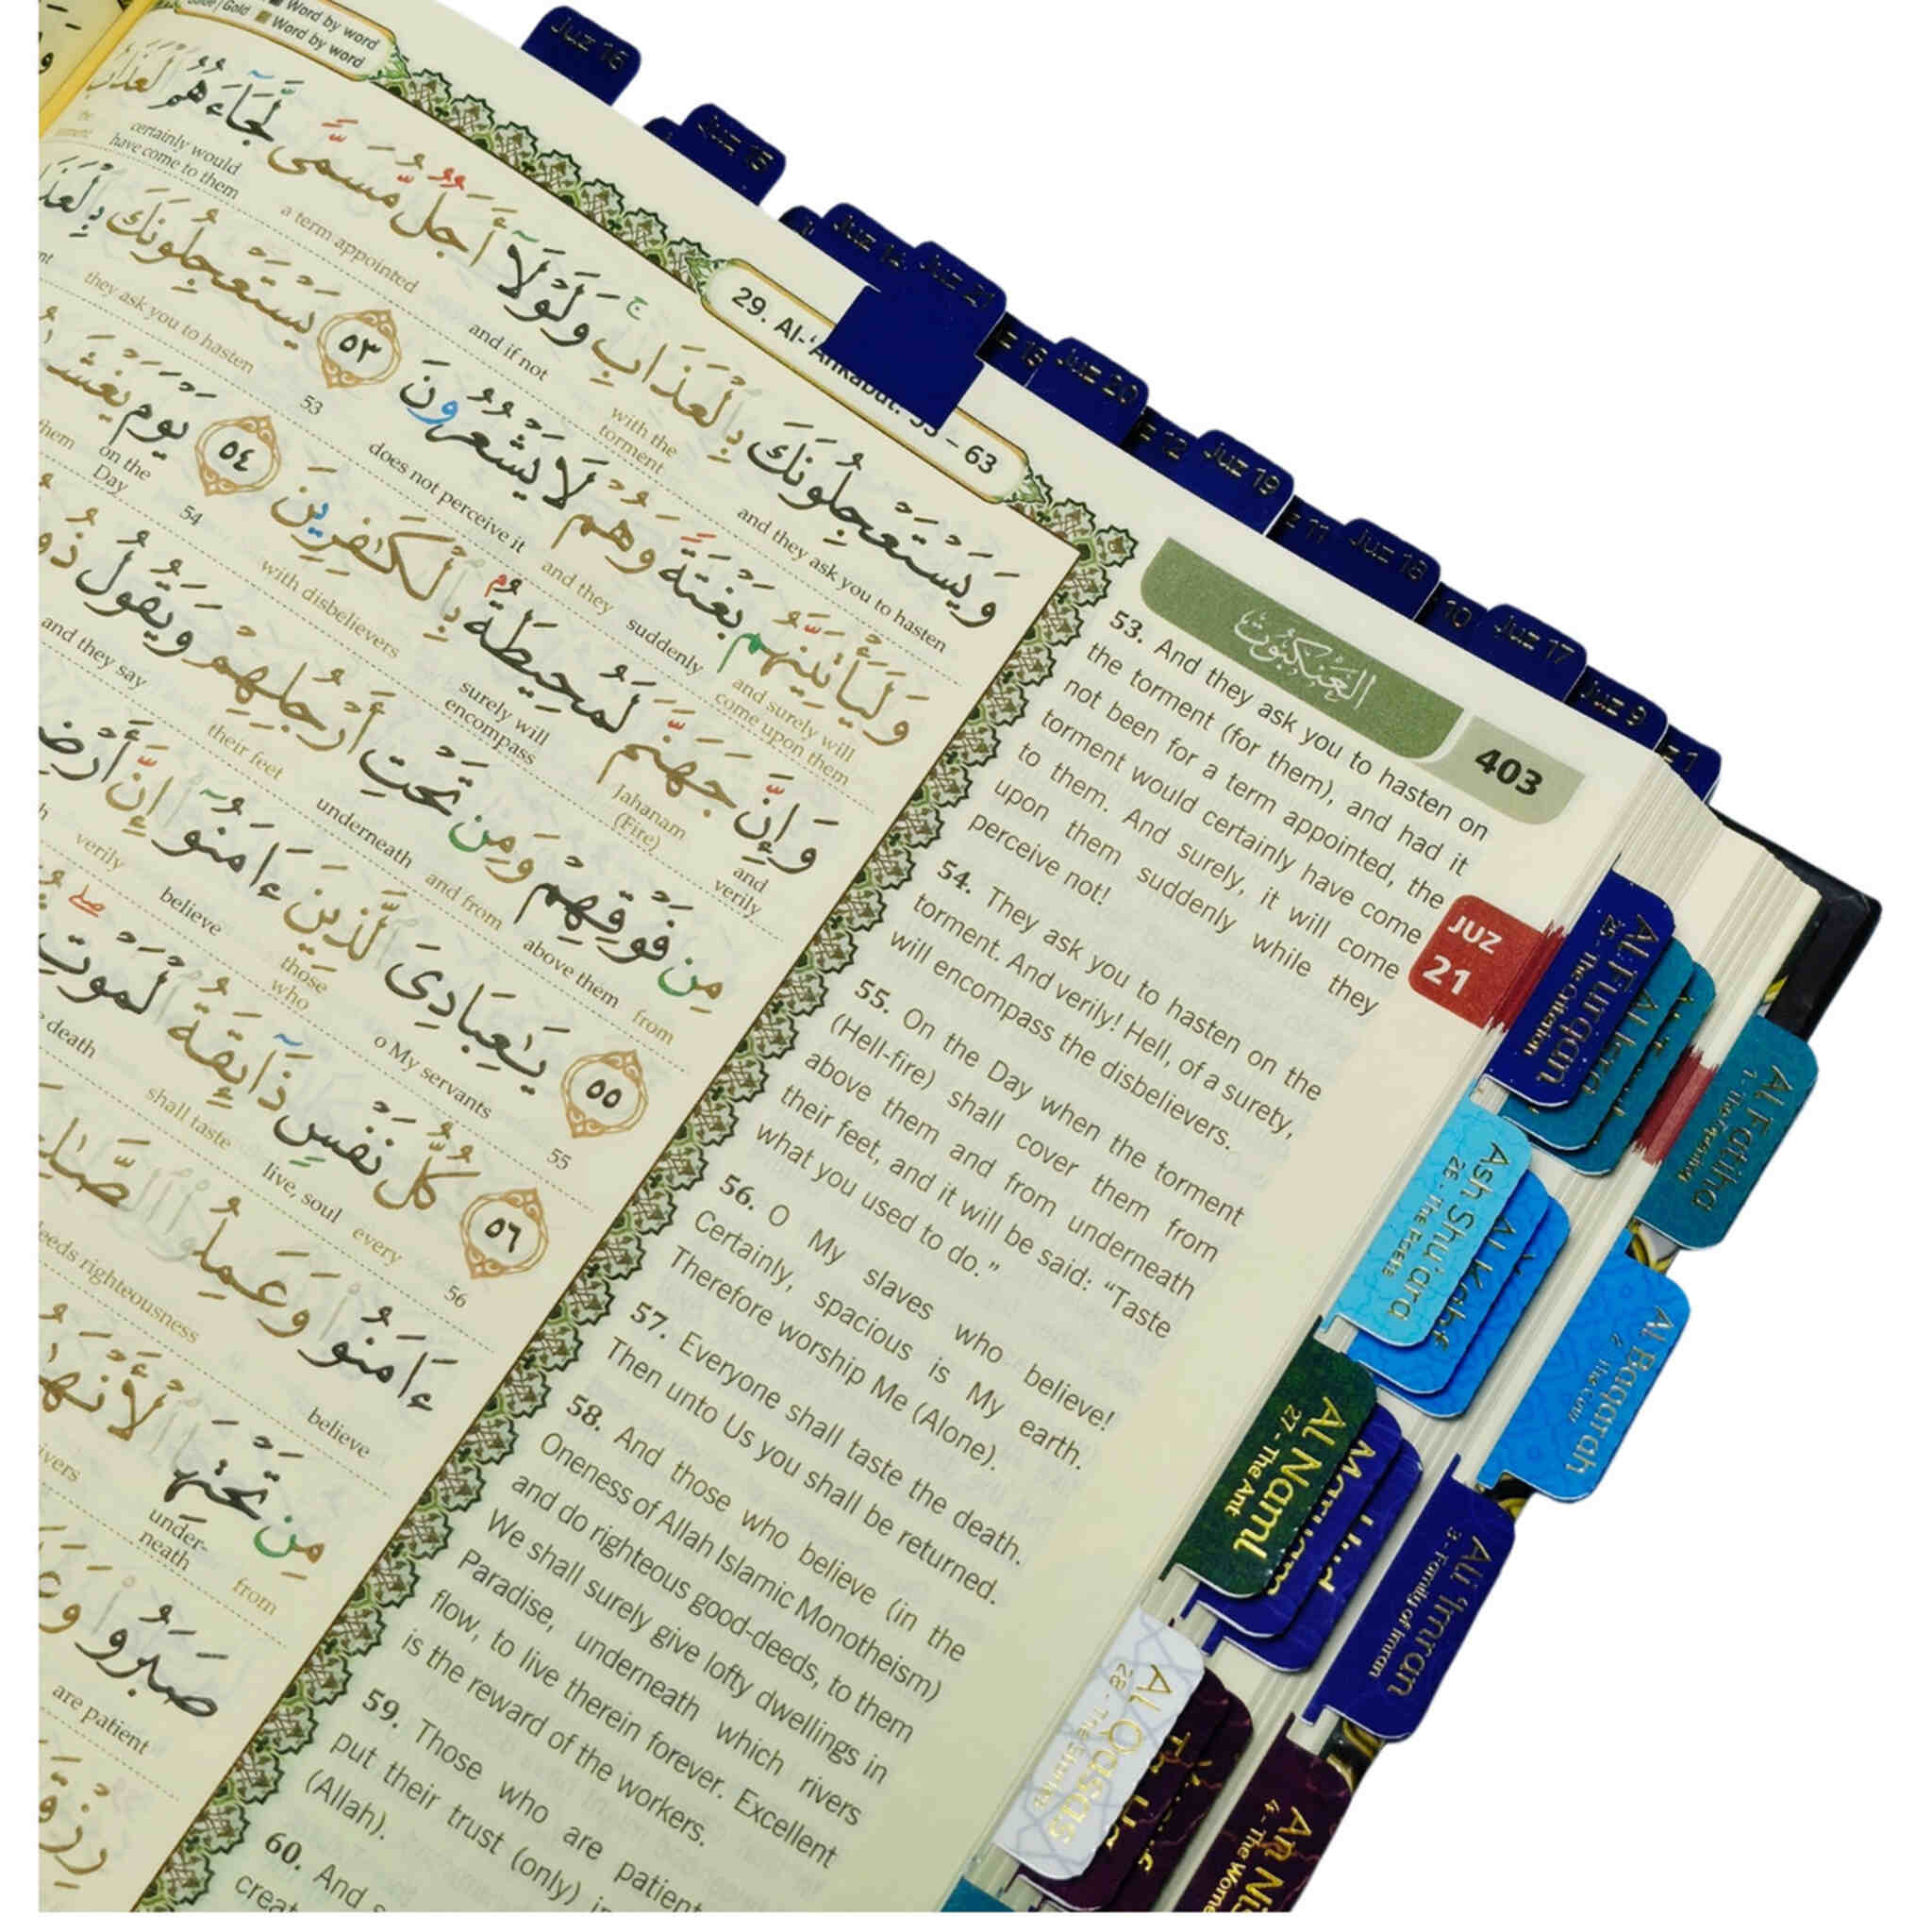 Word by word
Gold Word by word
29. Al-
– 63
وَيَسْتَعْجِلُونَكَ بِالْعَذَابِ ۚ وَلَوْلَا أَجَلٌ مُّسَمًّى لَّجَاءَهُمُ الْعَذَابُ
and they ask you to hasten
with the torment
and if not
a term appointed
certainly would have come to them
وَلَيَأْتِيَنَّهُم بَغْتَةً وَهُمْ لَا يَشْعُرُونَ ٥٣ يَسْتَعْجِلُونَكَ
and surely will come upon them
suddenly
and they
does not perceive it
53
they ask you to hasten
وَإِنَّ جَهَنَّمَ لَمُحِيطَةٌ بِالْكَافِرِينَ ٥٤ يَوْمَ
and verily
Jahanam (Fire)
surely will encompass
with disbelievers
54
on the Day
مِن فَوْقِهِمْ وَمِن تَحْتِ أَرْجُلِهِمْ وَيَقُولُ
from
above them
and from
underneath
their feet
and they say
٥٥ يَاعِبَادِيَ الَّذِينَ ءَامَنُوا إِنَّ
55
o My servants
those who
believe
verily
٥٦ كُلُّ نَفْسٍ ذَائِقَةُ الْمَوْتِ ۖ
56
every
live, soul
shall taste
death
ءَامَنُوا وَعَمِلُوا
believe
righteousness
مِن تَحْتِهَا
from
under-neath
صَبَرُوا
are patient
العَنكبُوت
403
53. And they ask you to hasten on
the torment (for them), and had it
not been for a term appointed, the
torment would certainly have come
to them. And surely, it will come
upon them suddenly while they
perceive not!
54. They ask you to hasten on the
torment. And verily! Hell, of a surety,
will encompass the disbelievers.
55. On the Day when the torment
(Hell-fire) shall cover them from
above them and from underneath
their feet, and it will be said: “Taste
what you used to do.”
56. O My slaves who believe!
Certainly, spacious is My earth.
Therefore worship Me (Alone).
57. Everyone shall taste the death.
Then unto Us you shall be returned.
58. And those who believe (in the
Oneness of Allah Islamic Monotheism)
and do righteous good-deeds, to them
We shall surely give lofty dwellings in
Paradise, underneath which rivers
flow, to live therein forever. Excellent
is the reward of the workers.
59. Those who are patient
put their trust (only) in
(Allah).
60. And
JUZ
21
Juz 16
Juz 15
Juz 14
Juz 21
Juz 20
12
Juz 19
11
Juz 18
10
Juz 17
Juz 9
1
Al Furqan
25 - The Criterion
Al Fatiha
Ash Shu'ara
26 - The Poets
Al Kahf
Al Baqarah
The Cow
Al Naml
27 - The Ant
Maryam
Hud
Ali 'Imran
3 - Family of Imran
Al Qasas
28 - The Stories
An Nis
4 - The Wome